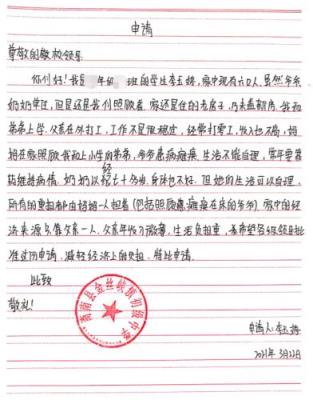 申请
尊敬的敬校领导
你们好！我 年级 班的学生李玉婷，家中现有六口人，虽然爷爷
奶奶单住，但是还是我们照顾着，家还是住的老房子，乃未盖新房。我和
弟弟上学，父亲在外打工，工作不是很稳定，经常打零工，收入也不高，妈妈
在家照顾我和上小学的弟弟，爷爷患病瘫痪，生活不能自理，常年要靠
药维持病情，奶奶以经七十多岁，身体也不好，但她的生活可以自理，
所有的重担都由妈妈一人担着（包括照顾患瘫痪在床的爷爷），家中的经
济来源多靠父亲一人，父亲年收入微薄，生活负担重，希望各级领导批
准这份申请，减轻经济上的负担，特此申请。
此致
敬礼！
商南县金丝峡镇初级中学
申请人：李玉婷
2021年3月22日